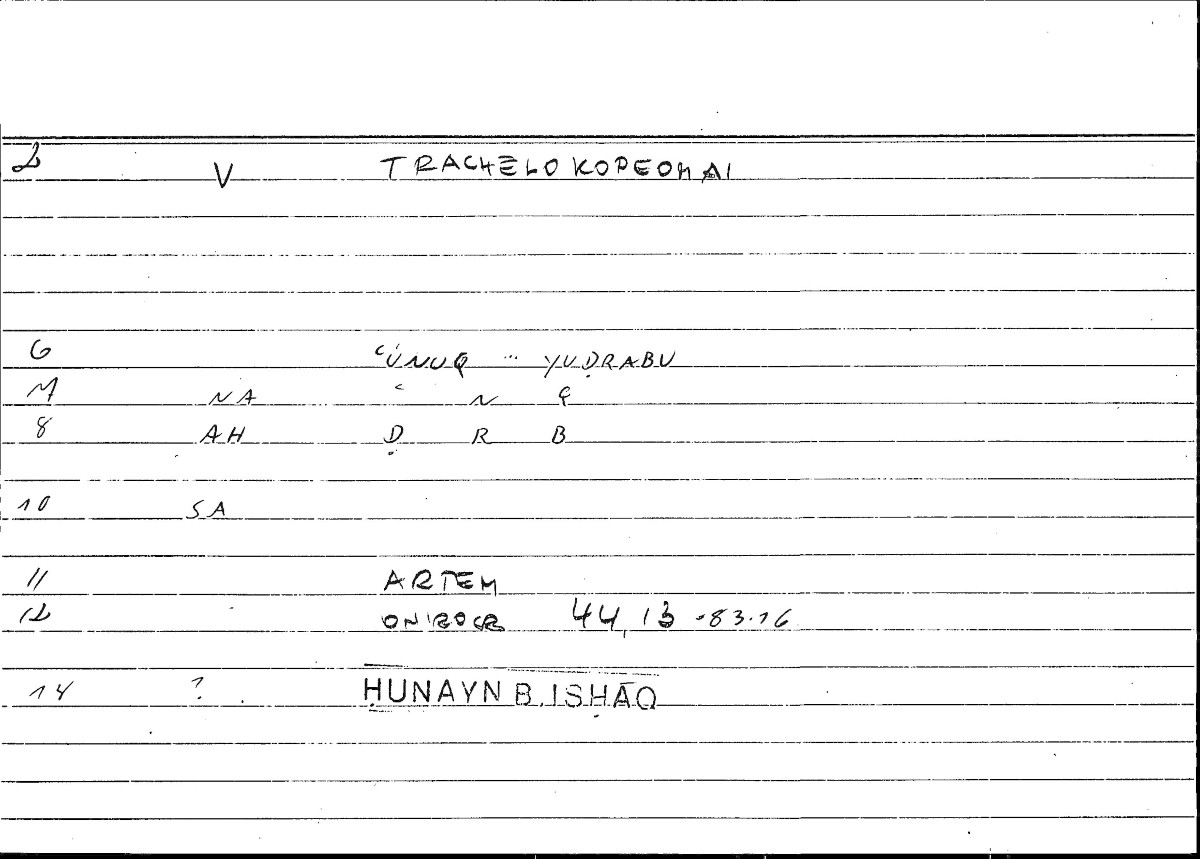 2 V TRACHELOKOPEOMAI
6 ʿUNUQ ... YUḌRABU
7 NA ʿ N Q
8 AH Ḍ R B
10 SA
11 ARTEM
12 ONIROCR 44,13 - 83.16
14 ? ḤUNAYN B. ISḤĀQ